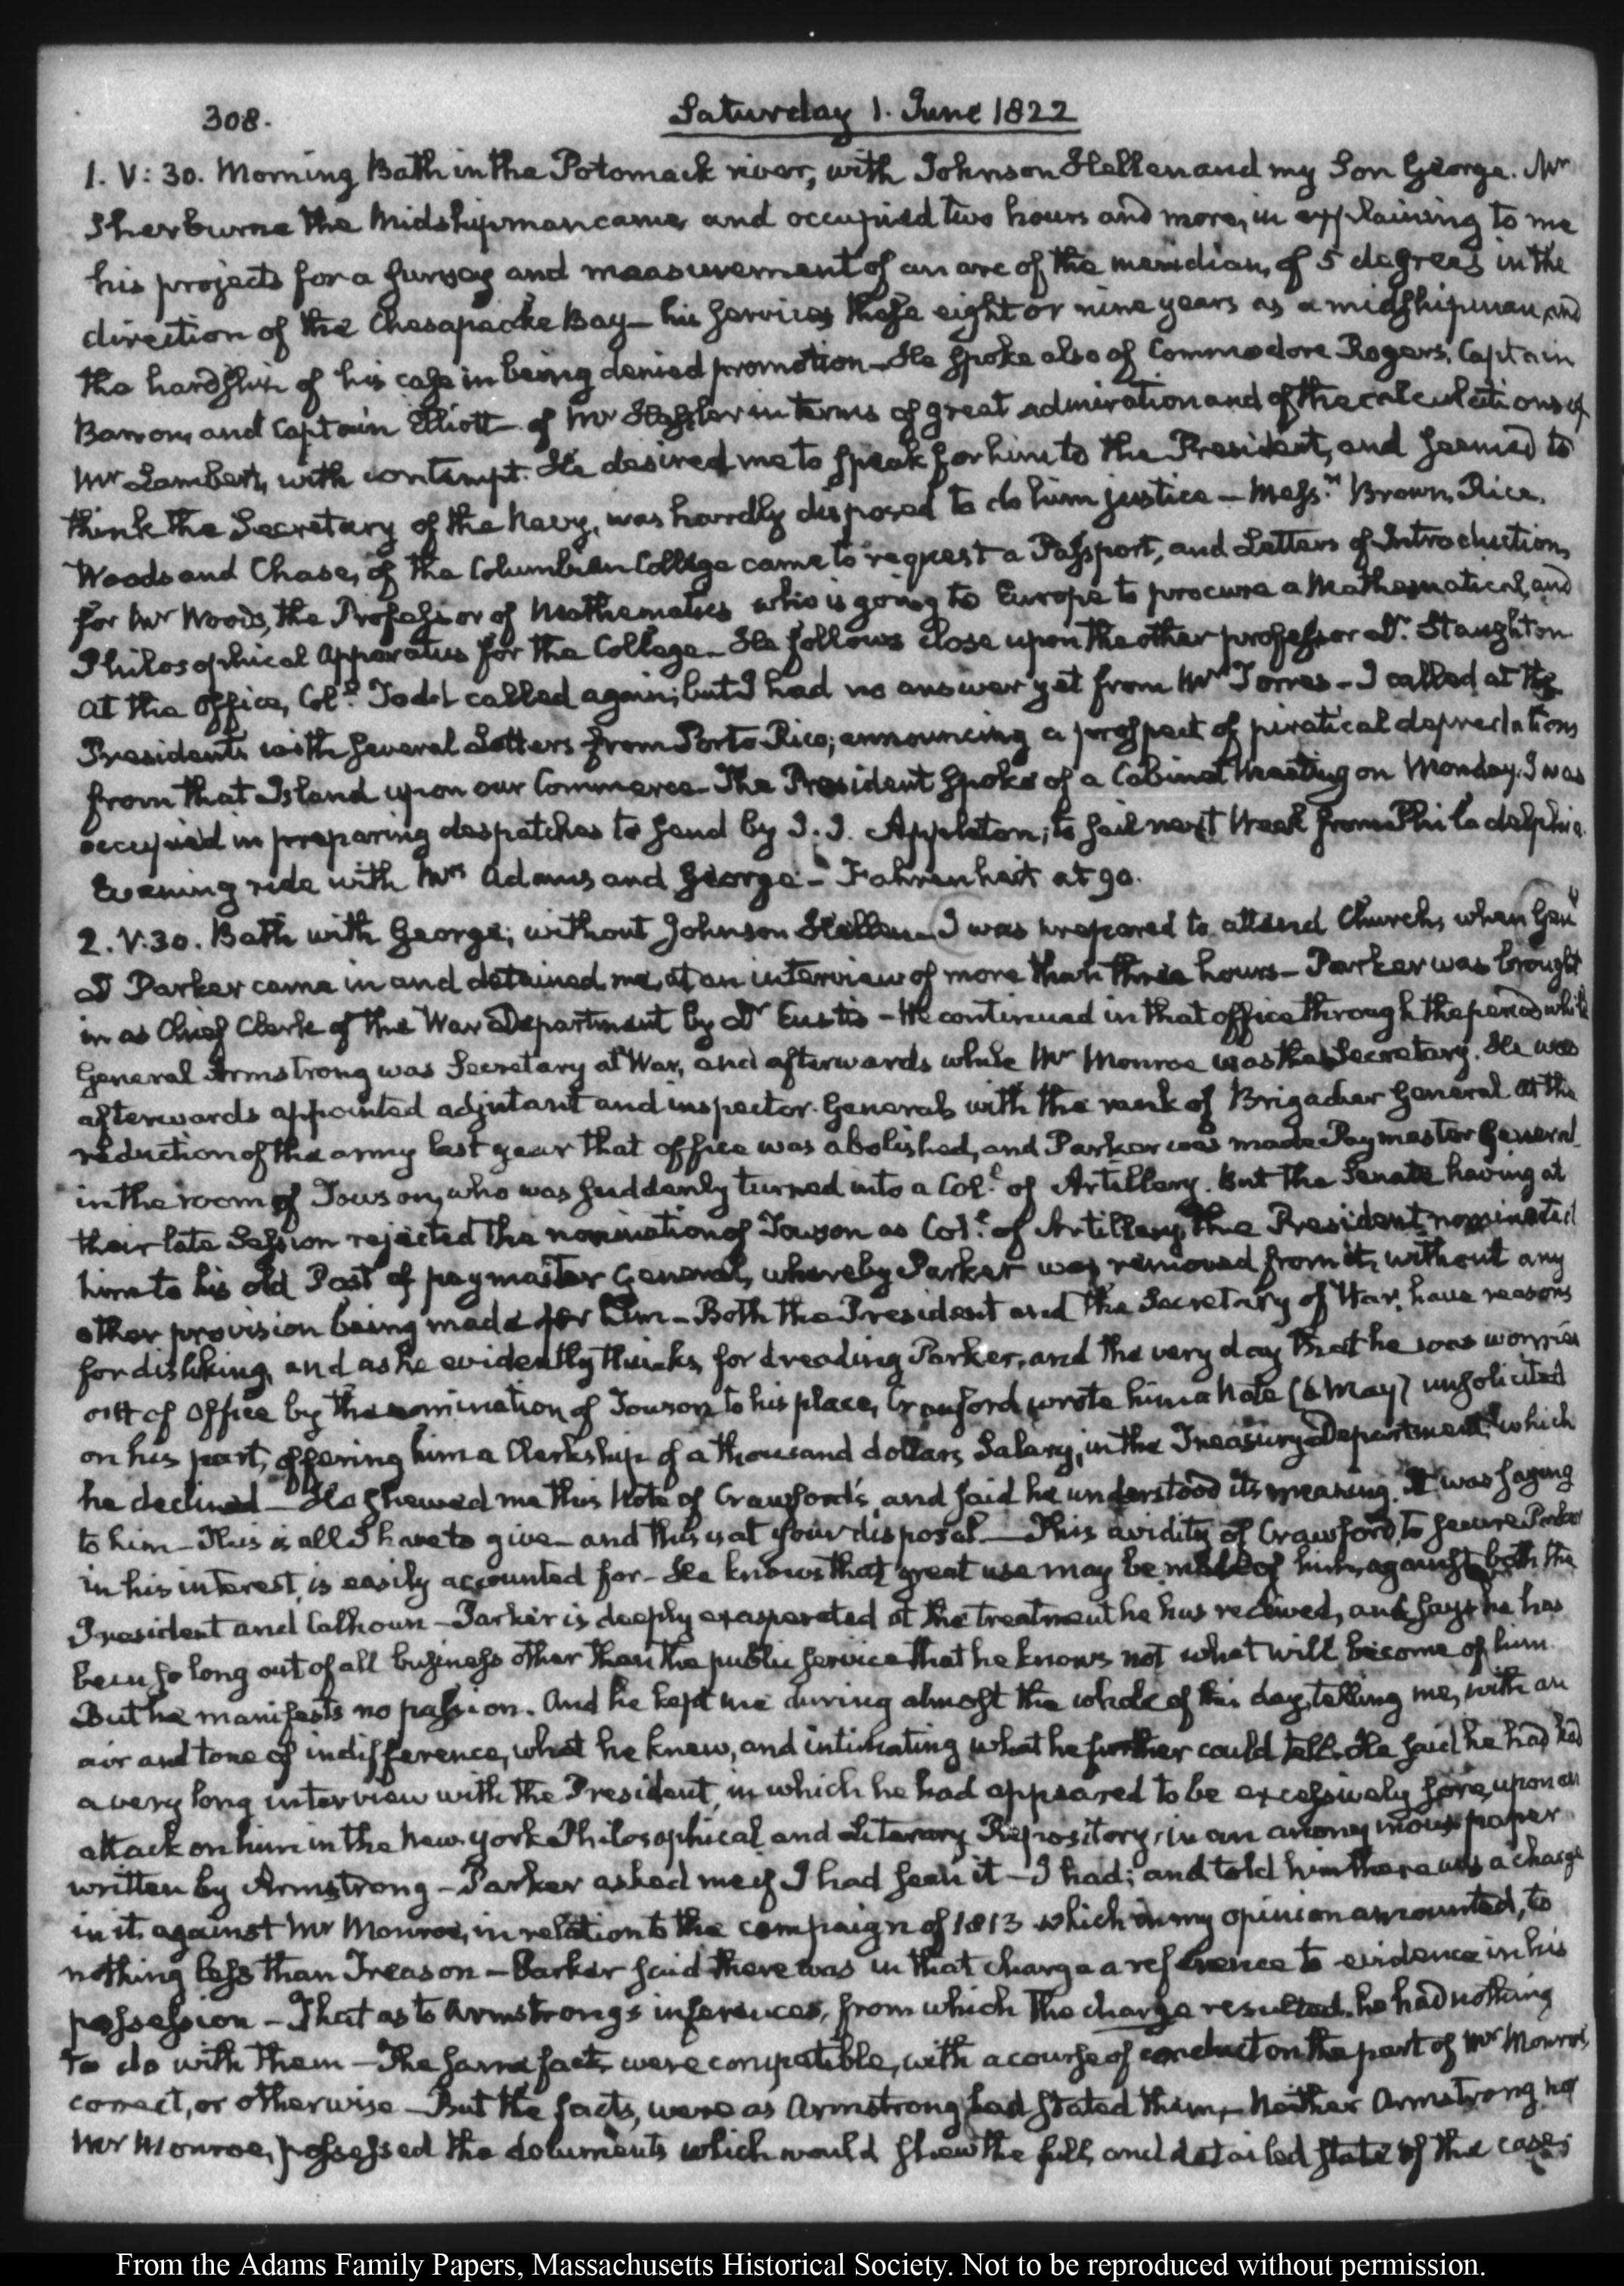 308.
Saturday 1. June 1822
1. V: 30. Morning Bath in the Potomack river, with Johnson Hellen and my Son George. Mr
Sherburne the Midshipman came, and occupied two hours and more, in explaining to me
his projects for a survey and measurement of an arc of the meridian, of 5 degrees in the
direction of the Chesapeake Bay — his services these eight or nine years as a midshipman, and
the hardship of his case in being denied promotion — He spoke also of Commodore Rogers, Captain
Barron, and Captain Elliott — of Mr Hassler in terms of great admiration and of the calculations of
Mr Lambert, with contempt. He desired me to speak for him to the President, and seemed to
think the Secretary of the Navy, was hardly disposed to do him justice — Messrs Brown, Rice,
Woods and Chase, of the Columbian College came to request a Passport, and Letters of Introduction,
for Mr Woods, the Professor of Mathematics who is going to Europe to procure a Mathematical, and
Philosophical Apparatus for the College — He follows close upon the other professor Dr. Staughton
At the office, Coll. Todd called again; but I had no answer yet from Mr Torres — I called at the
Presidents with several Letters from Porto-Rico; announcing a prospect of piratical depredations
from that Island upon our Commerce — The President spoke of a Cabinet Meeting on Monday. I was
occupied in preparing despatches to send by J. J. Appleton; to sail next Week from Philadelphia.
Evening ride with Mrs Adams and George — Fahrenheit at 90.
2. V:30. Bath with George; without Johnson Hellen — I was prepared to attend Church, when Genl
D Parker came in and detained me, at an interview of more than three hours — Parker was brought
in as Chief Clerk of the War Department by Dr Eustis — He continued in that office through the period while
General Armstrong was Secretary at War, and afterwards while Mr Monroe was the Secretary. He was
afterwards appointed adjutant and inspector General, with the rank of Brigadier General. At the
reduction of the army last year that office was abolished, and Parker was made Paymaster General
in the room of Towson, who was suddenly turned into a Coll. of Artillery. But the Senate having at
their late Session rejected the nomination of Towson as Coll. of Artillery, the President nominated
him to his old Post of paymaster General, whereby Parker was removed from it, without any
other provision being made for him — Both the President and the Secretary of War, have reasons
for disliking, and as he evidently thinks, for dreading Parker, and the very day that he was worried
out of Office by the nomination of Towson to his place, Crawford wrote him a Note (6 May) unsolicited
on his part, offering him a Clerkship of a thousand dollars Salary, in the Treasury Department, which
he declined — He shewed me this Note of Crawford's, and said he understood its meaning. It was saying
to him — This is all I have to give — and this is at your disposal — This avidity of Crawford, to secure Parker
in his interest, is easily accounted for — He knows that great use may be made of him, against both the
President and Calhoun — Parker is deeply exasperated at the treatment he has received, and says he has
been so long out of all business other than the public service that he knows not what will become of him.
But he manifests no passion. And he kept me during almost the whole of this day, telling me, with an
air and tone of indifference, what he knew, and intimating what he further could tell. He said he had had
a very long interview with the President, in which he had appeared to be excessively sore, upon an
attack on him in the New-York Philosophical and Literary Repository, in an anonymous paper
written by Armstrong — Parker asked me if I had seen it — I had; and told him there was a charge
in it, against Mr Monroe, in relation to the campaign of 1813 which in my opinion amounted, to
nothing less than Treason — Parker said there was in that charge a reference to evidence in his
possession — That as to Armstrongs inferences, from which the charge resulted, he had nothing
to do with them — The same facts, were compatible, with a course of conduct on the part of Mr Monroe,
correct, or otherwise — But the facts, were as Armstrong had stated them — Neither Armstrong nor
Mr Monroe, possessed the documents which would shew the full, and detailed state of the case;
From the Adams Family Papers, Massachusetts Historical Society. Not to be reproduced without permission.